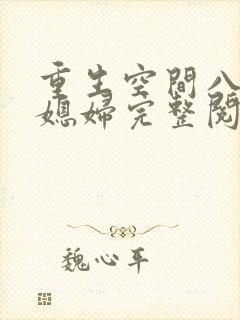 重生空間八
媳婦完整閱
魏心平